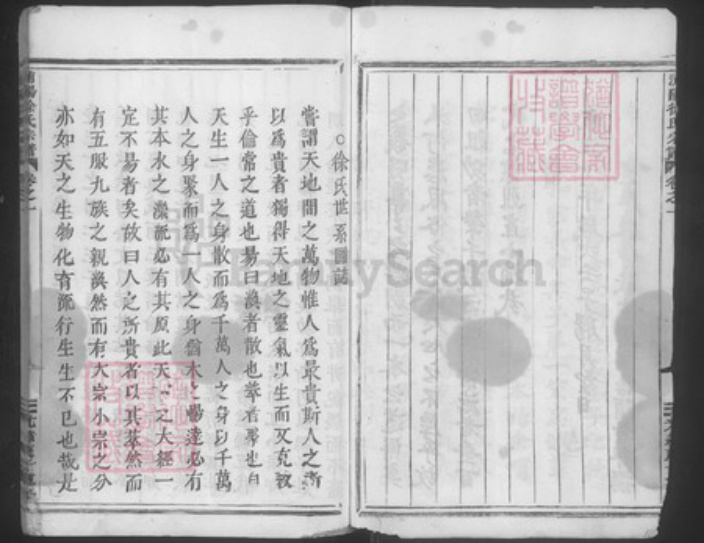 徐氏世系圖誌
嘗謂天地間之萬物惟人爲最貴斯人之所
以爲貴者獨得天地之靈氣以生而又克敦
乎倫常之道也易曰渙者散也萃者聚也自
天生一人之身散而爲千萬人之身以千萬
人之身聚而爲一人之身猶木之暢達必有
其本水之派必有其原此天下之大經一
定不易者矣故曰人之所貴者以其萃然而
有五服九族之親渙然而有大宗小宗之分
亦如天之生物化育流行生生不已也哉是
陽徐氏宗譜 卷之一
FamilySearch